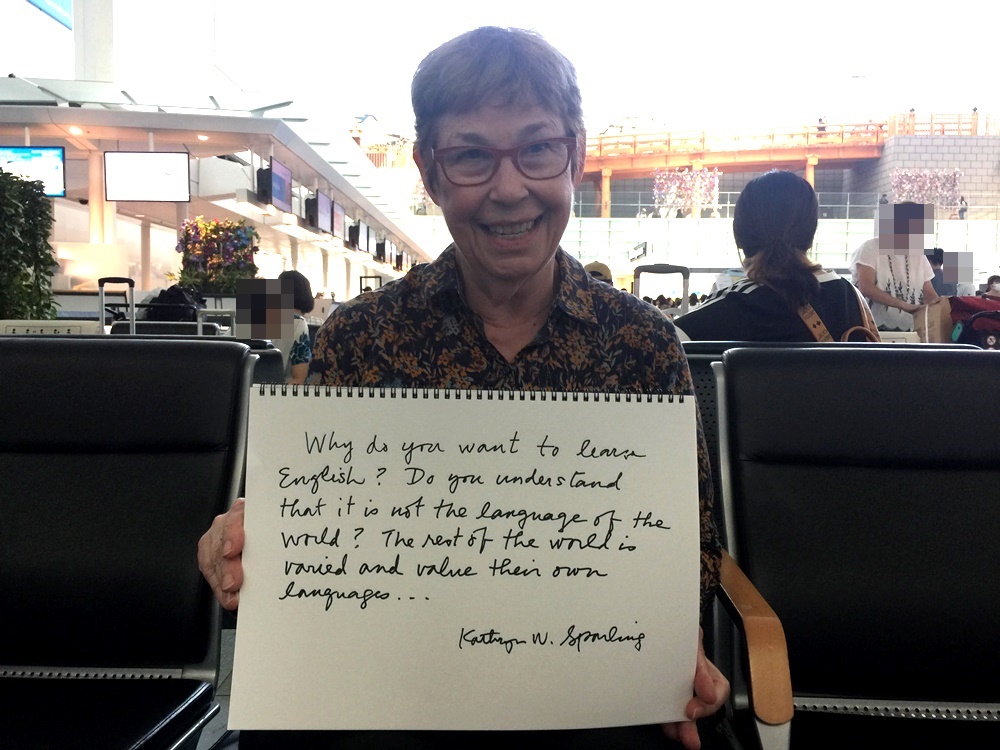 Why do you want to learn
English? Do you understand
that it is not the language of the
world? The rest of the world is
varied and value their own
languages...
Kathryn W. Sparling